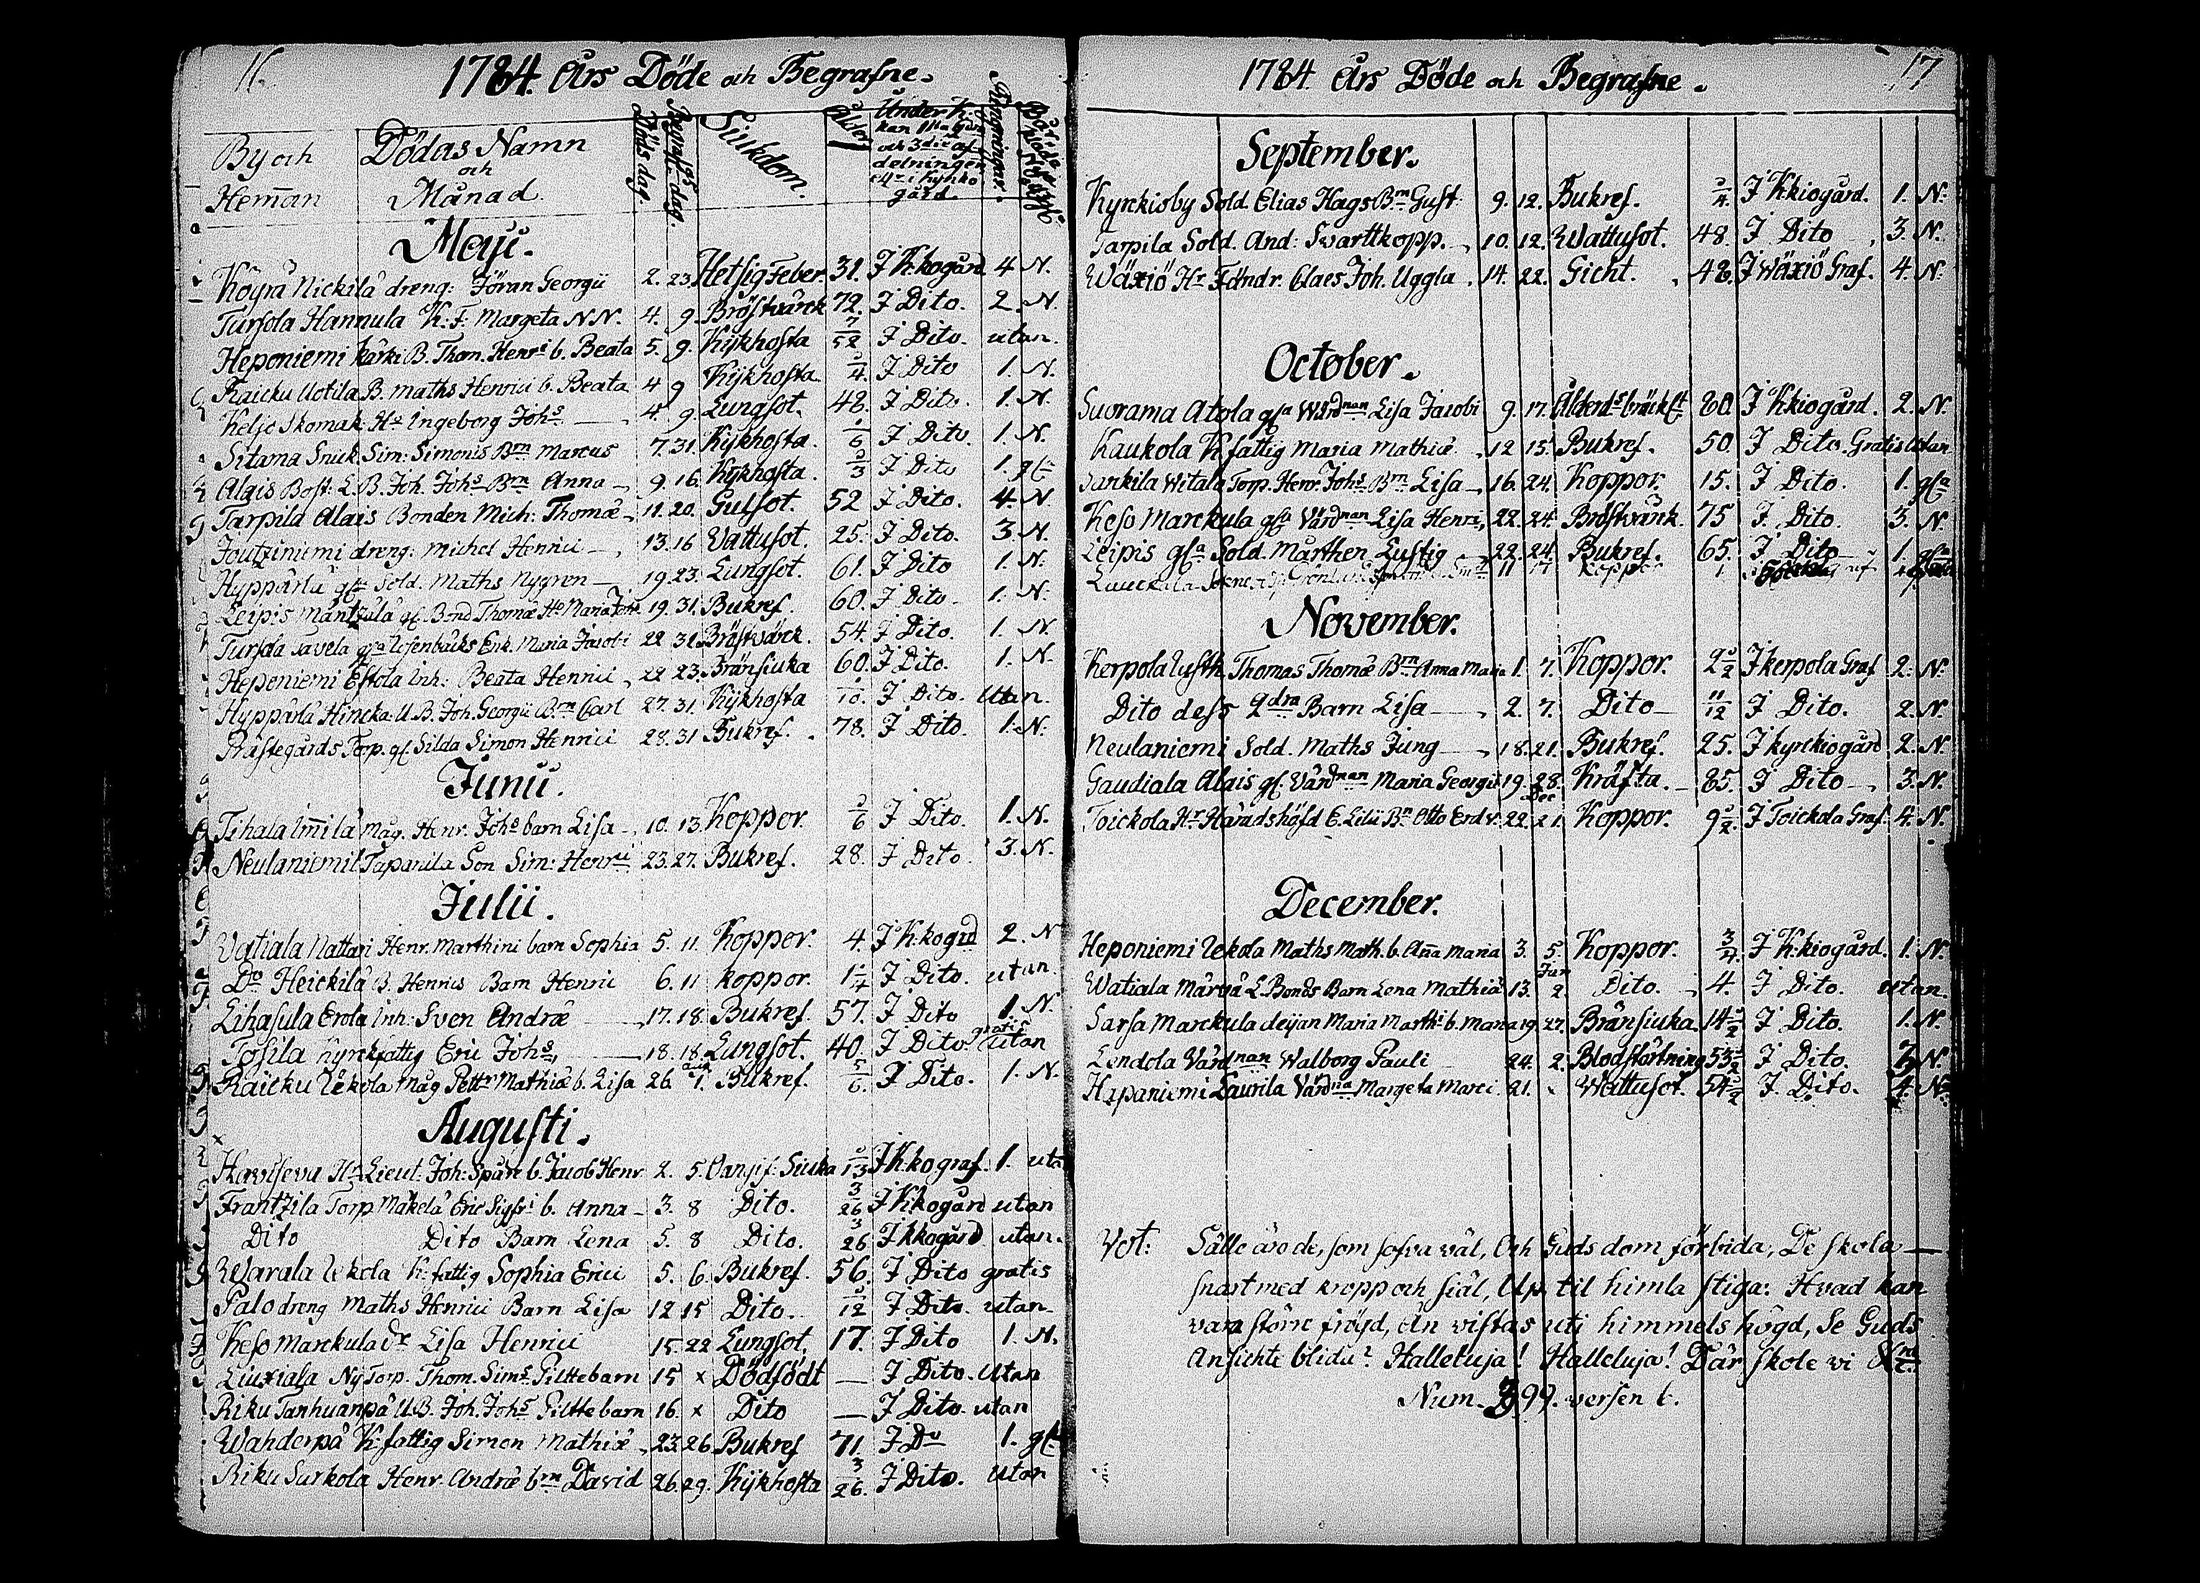 16.
1784. Års Döde och Begrafne.
By och Hemman
Dödas Namn och Månad.
Döds dag.
Begrafn:gs dag.
Siukdom.
Ålder
Ringningar.
Maji.
Köyrä Nickilä dreng: Jöran Georgii 2. 23. Hetsig Feber. 31. J K:kogård 4 N.
Tursola Hannula K: F: Margeta N N. 4. 9. Bröstvärck 72. J Dito. 2. N.
Heponiemi Kärki B. Thom. Henr: b. Beata 5. 9. Kijkhosta 7/52 J Dito. utan.
Raicku Uotila B. Maths Henrici b. Beata 4 9 Kijkhosta. 3/4. J Dito 1. N.
Keljo Skomak: H:u Ingeborg Joh:s 4. 9. Lungsot. 48. J Dito. 1. N.
Sitama Snick. Sim: Simonis B:rn Marcus 7. 31. Kijkhosta. 1/6 J Dito. 1. N.
Alais Bost: L. B. Joh. Joh:s B:rn Anna 9. 16. Kijkhosta. 2/3 J Dito 1. gl:a
Tarpila Alais Bonden Mich: Thomæ 11. 20. Gulsot. 52 J Dito. 4. N
Joutziniemi dreng: Michel Henrici 13. 16 Vattusot. 25. J Dito. 3. N.
Hyppärlä gl:e Sold. Maths Nygren 19. 23. Lungsot. 61. J Dito 1. N.
Leipis Mäntzälä gl. Bond Thomæ H:u Maria Joh: 19. 31. Bukref. 60. J Dito. 1. N.
Tursola Tavela gl:a Ufenbäcks Enk. Maria Jacobi 22 31. Bröstvärck. 54. J Dito. 1. N.
Heponiemi Eskola Inh: Beata Henrici 22 23. Bränsiuka 60. J Dito. 1. N.
Hyppärlä Hincka U. B. Joh. Georgii B:rn Carl 27. 31. Kijkhosta 1/10. J Dito. utan
Prästegårds Torp. gl. Silda Simon Henrici 28. 31 Bukref. 78. J Dito. 1. N.
Junii.
Tihala Immilä Måg. Henr. Joh:s barn Lisa 10. 13. Koppor. 5/6 J Dito 1. N.
Neulaniemi Tapanila Son Sim: Henri 23. 27. Bukref. 28. J Dito. 3. N.
Julii.
Vatiala Nattari Henr. Marthini barn Sophia 5. 11. Koppor. 4. J K:kogrd 2. N
D:o Heickilä B. Henrics Barn Henric 6. 11 koppor. 1 1/4 J Dito. utan
Lihasula Erola Inh: Sven Andræ 17. 18. Bukref. 57. J Dito 1. N.
Tosila Kyrckfattig Eric Joh:s 18. 18. Lungsot. 40. J Dito. gratis utan
Raicku Uckola Måg Pett:r Mathiæ b. Lisa 26. Aug. 1. Bukref. 5/6. J Dito. 1. N.
Augusti.
Havisevu H:r Lieut: Joh: Spåre b. Jacob Henr 2. 5. J K:kograf. 1. utan
Frantzila Torp Mäkelä Eric Sigfri b. Anna 3. 8 Dito. 3/26 J K:kogård utan
Dito Dito Barn Lena 5. 8 Dito. 3/26 J K:kogård utan.
Warala Uckola K: fattig Sophia Erici 5. 6. Bukref. 56. J Dito gratis
Palo dreng Maths Henrici Barn Lisa 12 15 Dito. 5/12 J Dito. utan
Keso Marckula Dr Lisa Henrici 15. 22 Lungsot. 17. J Dito 1. N.
Liuxiala Ny Torp. Thom. Sim:s Piltebarn 15 × Dödfödt J Dito. utan
Riku Tanhuanpä U. B. Joh. Joh:s Piltebarn 16. × Dito J Dito. utan
Wahderpä K: fattig Simon Mathiæ 23. 26. Bukref 71. J D:o 1. gl:a
Riku Surkola Henr. Andræ b:rn David 26. 29. Kijkhosta 3/26. J Dito. utan
17
1784. Års Döde och Begrafne.
September.
Kyrckioby Sold. Elias Hags B:rn Gust: 9. 12. Bukref. 3/4. J K:kiogård. 1. N:
Tarpila Sold. And: Svarttkopp. 10. 12. Wattusot. 48. J Dito 3. N.
Wäxiö H:r Fändr. Claes Joh. Uggla 14. 22. Gicht. 48. J Wäxiö Graf. 4. N.
October.
Suorama Atola gl:a Wärdnan Lisa Jacobi 9. 17. 80. J K:kiogård. 2. N.
Kaukola K: fattig Maria Mathiæ 12 15. Bukref. 50. J Dito. Gratis utan
Sankila Witala Torp. Henr. Joh:s B:rn Lisa 16. 24. Koppor. 15. J Dito. 1. gl:a
Keso Marckula gl:a Värdnan Lisa Henrici 22. 24. Bröstvärk. 75 J Dito. 3. N.
Leipis gl:a Sold. Mårthen Lustig 22. 24. Bukref. 65. J Dito 1. gl:a
November.
Kerpola Thomas Thomæ B:rn Anna Maria 1. 7. Koppor. 2 1/2 J Kerpola Graf 2. N.
Dito dess 2:dra Barn Lisa 2. 7. Dito 11/12 J Dito. 2. N.
Neulaniemi Sold. Maths Jung 18. 21. Bukref. 25. J kyrckiogård 2. N.
Gaudiala Alais gl. Värdnan Maria Georgii 19. 28. Kräfta. 85. J Dito 3. N.
Toickola H:r Häradshöfd E. Lilii B:n Otto Erdv: 22. Dec 21. Koppor. 9 1/2. J Toickola Graf. 4. N.
December.
Heponiemi Uckola Maths Math. b. Anna Maria 3. 5. Koppor. 3/4. J K:kiogård. 1. N.
Watiala Märvä L. Bonds Barn Lena Mathiæ 13. Jan 2. Dito. 4. J Dito. utan
Sarsa Marckula deijan Maria Marth: b. Maria 19. 27. Bränsiuka. 14 1/2 J Dito. 1. N.
Lendola Värdnan Walborg Pauli 24. 2. Blodstörtning 53 1/2 J Dito. N.
Hepaniemi Laurila Värdna Margeta Marci 21. Wattusot. 54 1/2 J. Dito. 4. N.
Vot: Sälle äro de, som sofva väl, Och Guds dom förbida, De skola
snart med kropp och siäl, Up til himla stiga: Hvad kan
vara större fröyd, Än vistas uti himmels högd, Se Guds
Ansichte blida? Halleluja! Halleluja! Där skole vi
Num. 399. versen 6.